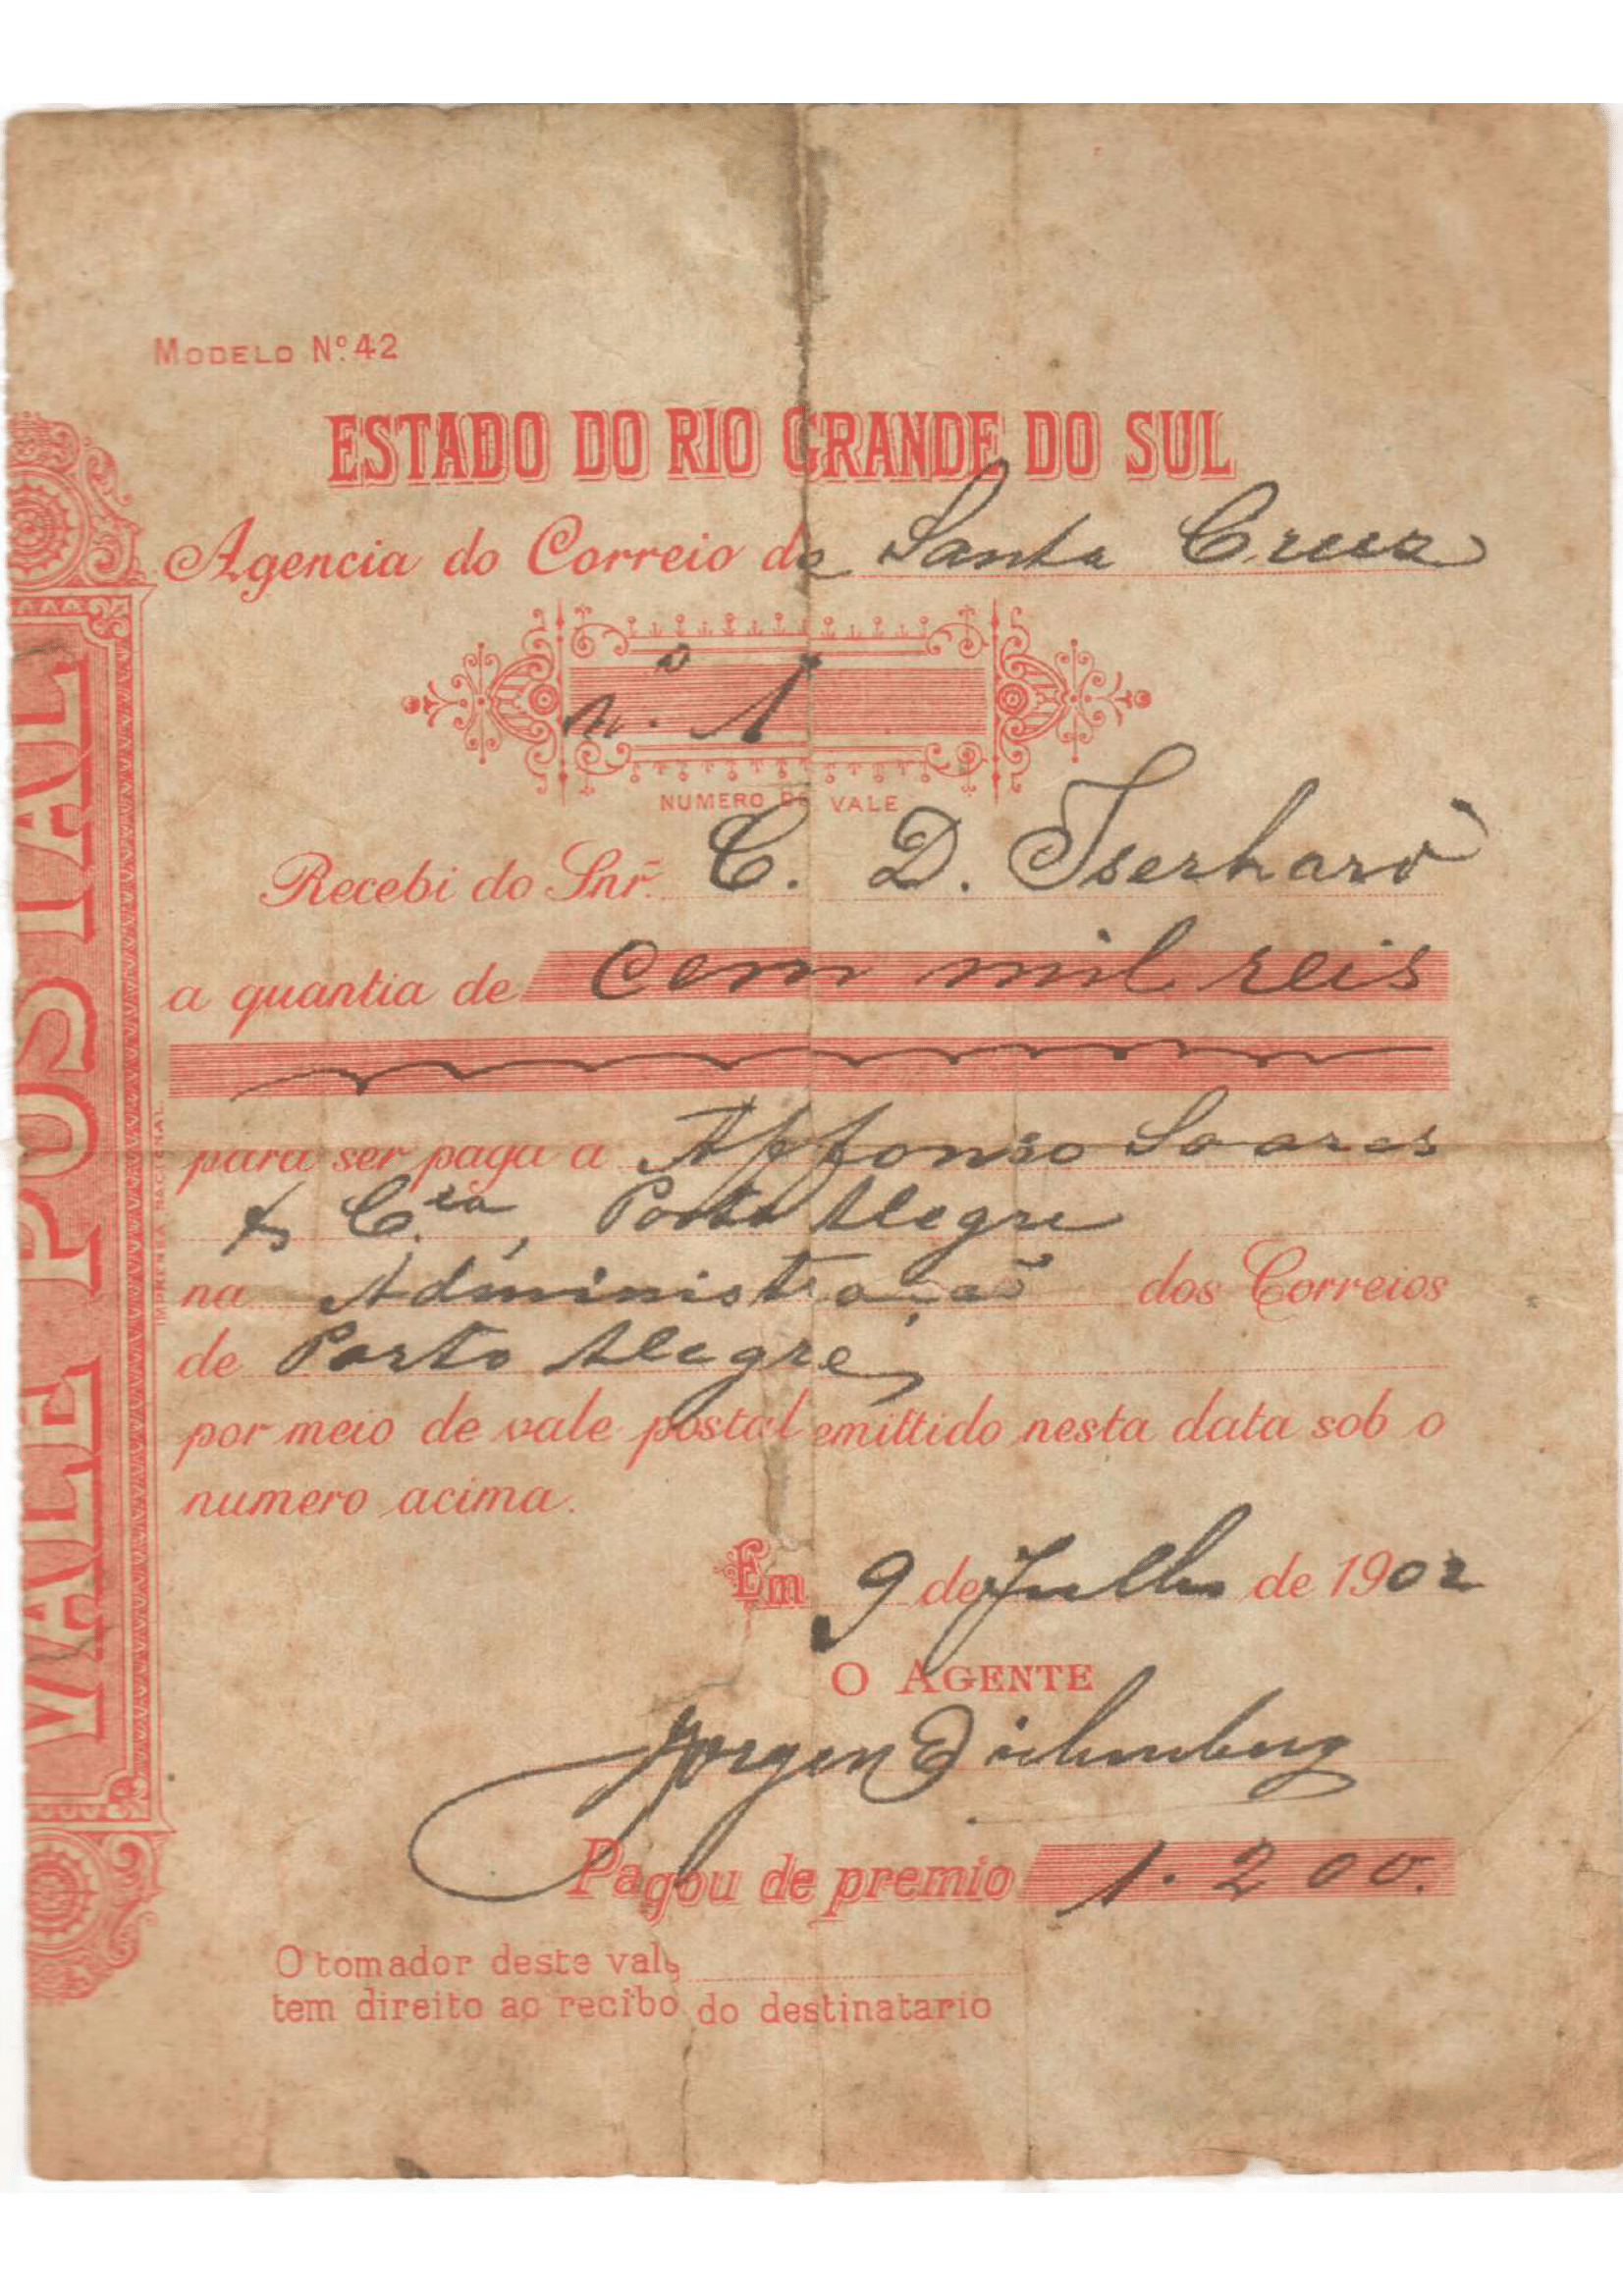 MODELO Nº 42
ESTADO DO RIO GRANDE DO SUL
Agencia do Correio de Santa Cruz
nº 1
NUMERO DO VALE
Recebi do Snr. C. D. Iserhard
a quantia de cem mil reis
para ser paga a Affonso Soares
& C.ia, Porto Alegre
na Administração dos Correios
de Porto Alegre,
por meio de vale postal emittido nesta data sob o
numero acima.
Em 9 de Julho de 1902
O AGENTE
Jorgen
Pagou de premio 1.200.
O tomador deste vale
tem direito ao recibo do destinatario
VALE POSTAL
IMPRENSA NACIONAL